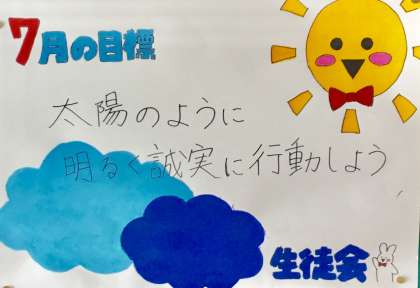 7月の目標
太陽のように
明るく誠実に行動しよう
生徒会